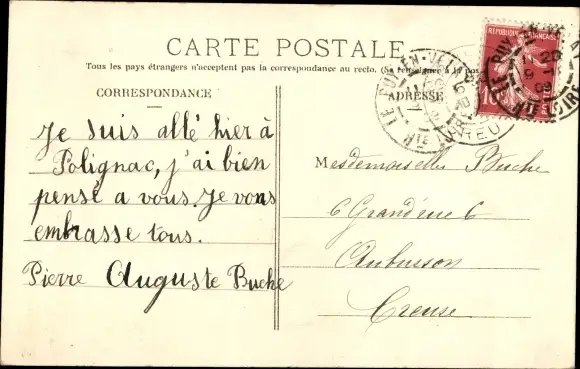 CARTE POSTALE
Tous les pays étrangers n'acceptent pas la correspondance au recto. (Se renseigner à la poste)
CORRESPONDANCE
ADRESSE
Je suis allé hier à
Polignac, j'ai bien
pensé a vous. Je vous
embrasse tous.
Pierre Auguste Buche
Mesdemoiselles Buche
6 Grand'rue 6
Aubusson
Creuse
REPUBLIQUE FRANÇAISE
10
LE PUY-EN-VELAY
HTE LOIRE